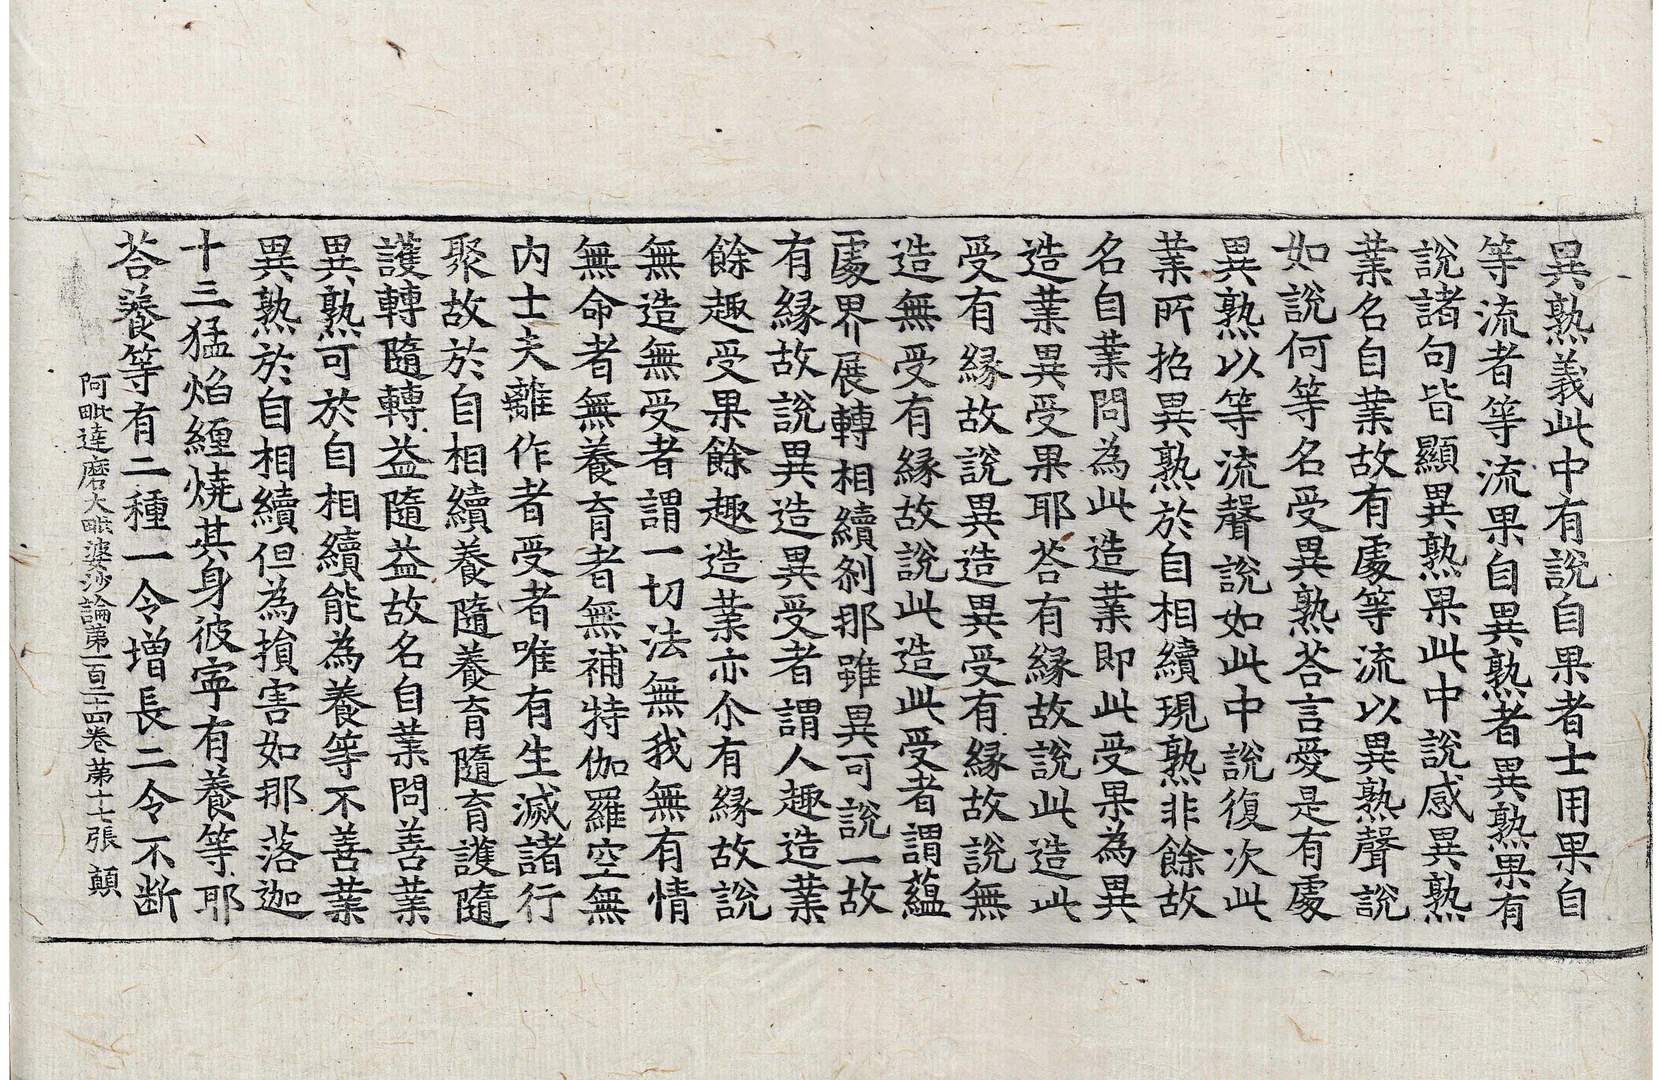 異熟義此中有說自果者士用果自
等流者等流果自異熟者異熟果有
說諸句皆顯異熟果此中說感異熟
業名自業故有處等流以異熟聲說
如說何等名受異熟荅言愛是有處
異熟以等流聲說如此中說復次此
業所招異熟於自相續現熟非餘故
名自業問為此造業即此受果為異
造業異受果耶荅有緣故說此造此
受有緣故說異造異受有緣故說無
造無受有緣故說此造此受者謂蘊
處界展轉相續刹那雖異可說一故
有緣故說異造異受者謂人趣造業
餘趣受果餘趣造業亦尒有緣故說
無造無受者謂一切法無我無有情
無命者無養育者無補特伽羅空無
内士夫離作者受者唯有生滅諸行
聚故於自相續養隨養育隨育護隨
護轉隨轉益隨益故名自業問善業
異熟可於自相續能為養等不善業
異熟於自相續但為損害如那落迦
十三猛焰纏燒其身彼寜有養等耶
荅養等有二種一令增長二令不断
阿毗達磨大毗婆沙論第一百二十四卷 第十七張 顛